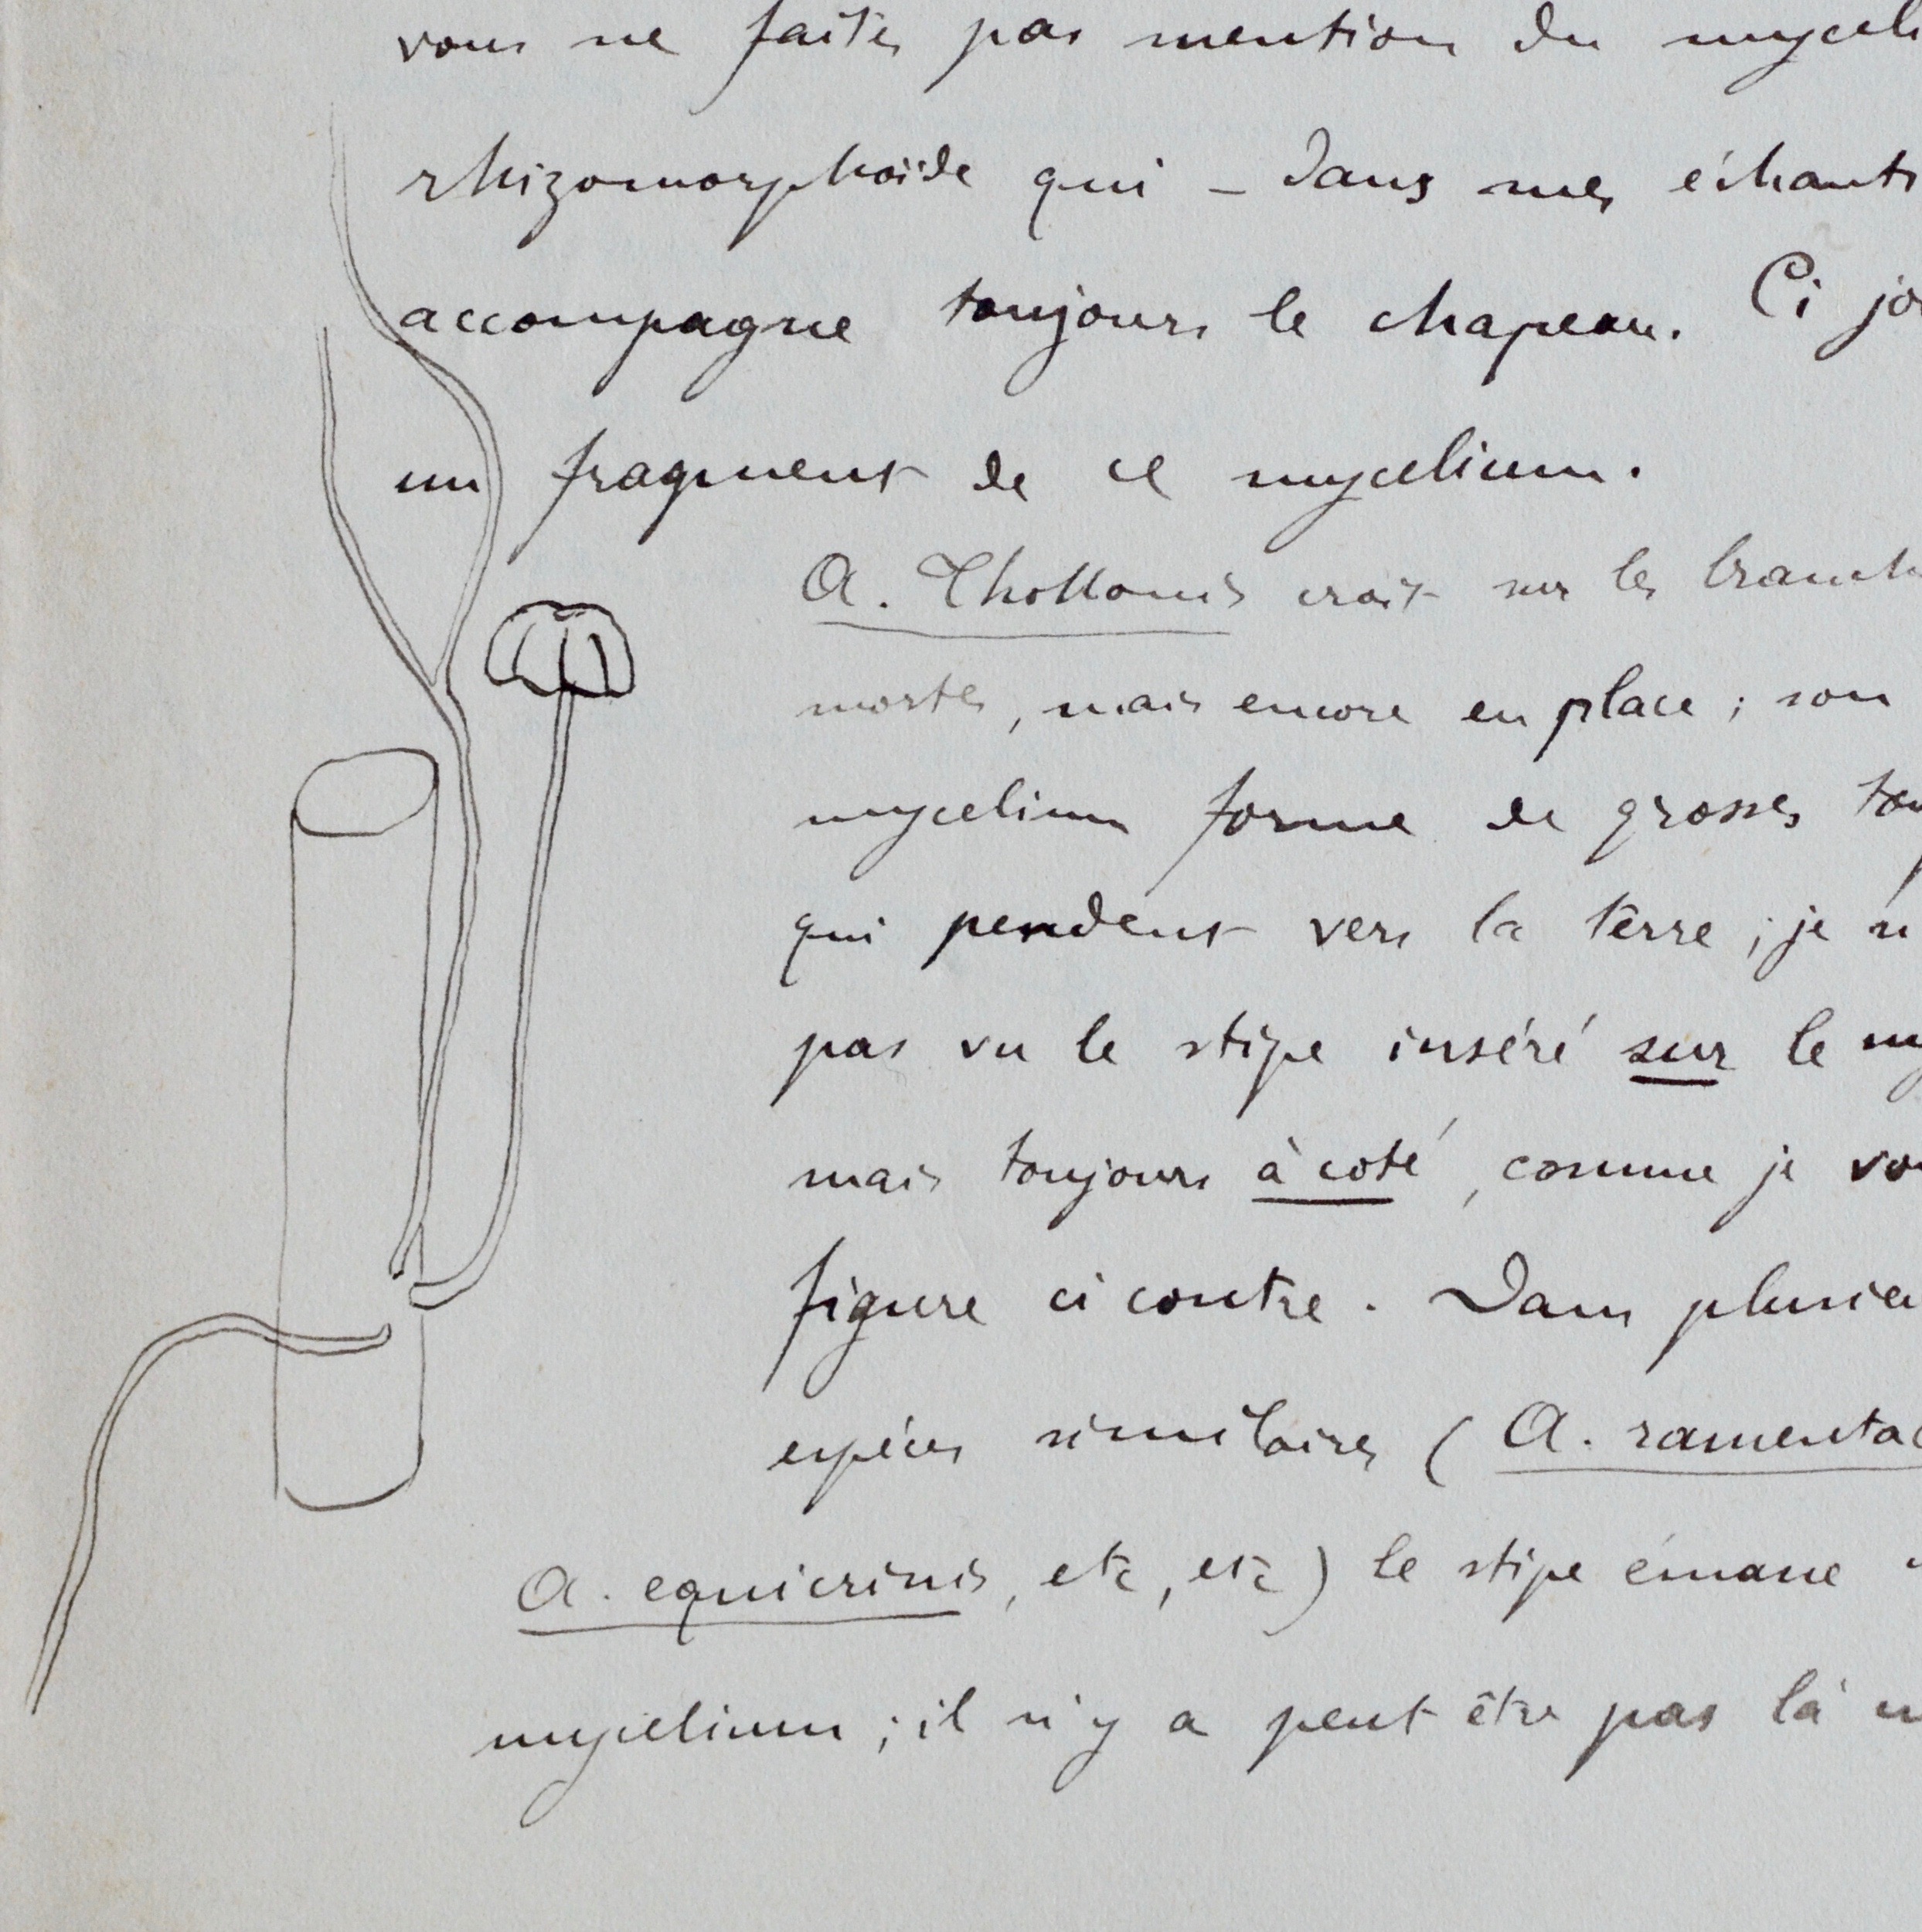 vous ne faites pas mention du myceli
rhizomorphoïde qui – dans mes échanti
accompagne toujours le chapeau. Ci joi
un fragment de ce mycelium.
A. Thollonis croit sur les branch
mortes, mais encore en place ; son
mycelium forme de grosses tou
qui pendent vers la terre ; je n'
pas vu le stipe inséré sur le my
mais toujours à coté, comme je vou
figure ci contre. Dans plusieu
espéces similaires ( A. ramentac
A. equicrinis, etc, etc ) le stipe émane
mycelium ; il n'y a peut être pas là